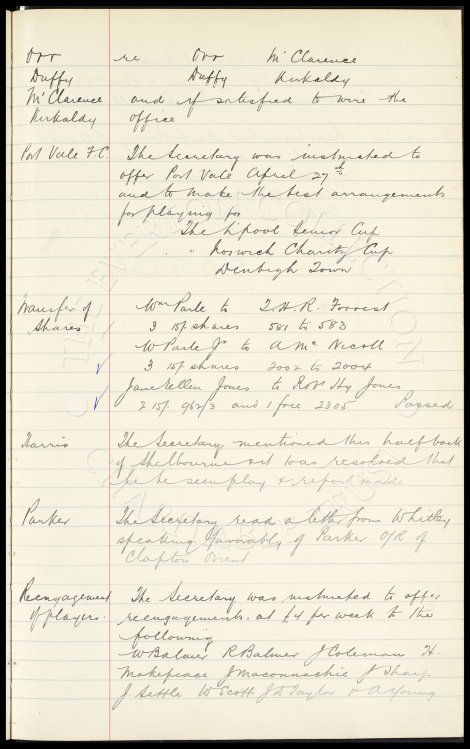 Orr re Orr McClarence
Duffy Duffy Kirkaldy
McClarence and if satisfied to wire the
Kirkaldy office
Port Vale F.C. The Secretary was instructed to
offer Port Vale April 27th
and to make the best arrangements
for playing for
The L'pool Senior Cup
" Norwich Charity Cup
Denbigh Town
Transfer of Wm Parle to T.H.R. Forrest
Shares 3 15/- shares 581 to 583
W Parle Jr to A Mc Nicoll
3 15/- shares 2002 to 2004
Jane Ellen Jones to Robt Hy Jones
2 15/- 962/3 and 1 free 2305 Passed
Harris The Secretary mentioned this half back
of Shelbourne & it was resolved that
he be seen play & report made
Parker The Secretary read a letter from Whitley
speaking favorably of Parker O/R of
Clapton Orient
Reengagement The Secretary was instructed to offer
of players. reengagements at £4 per week to the
following
W Balmer R Balmer J Coleman H.
Makepeace J Maconnachie J Sharp
J. Settle W Scott J D Taylor & A Young
THE EVERTON COLLECTION
CHARITABLE TRUST